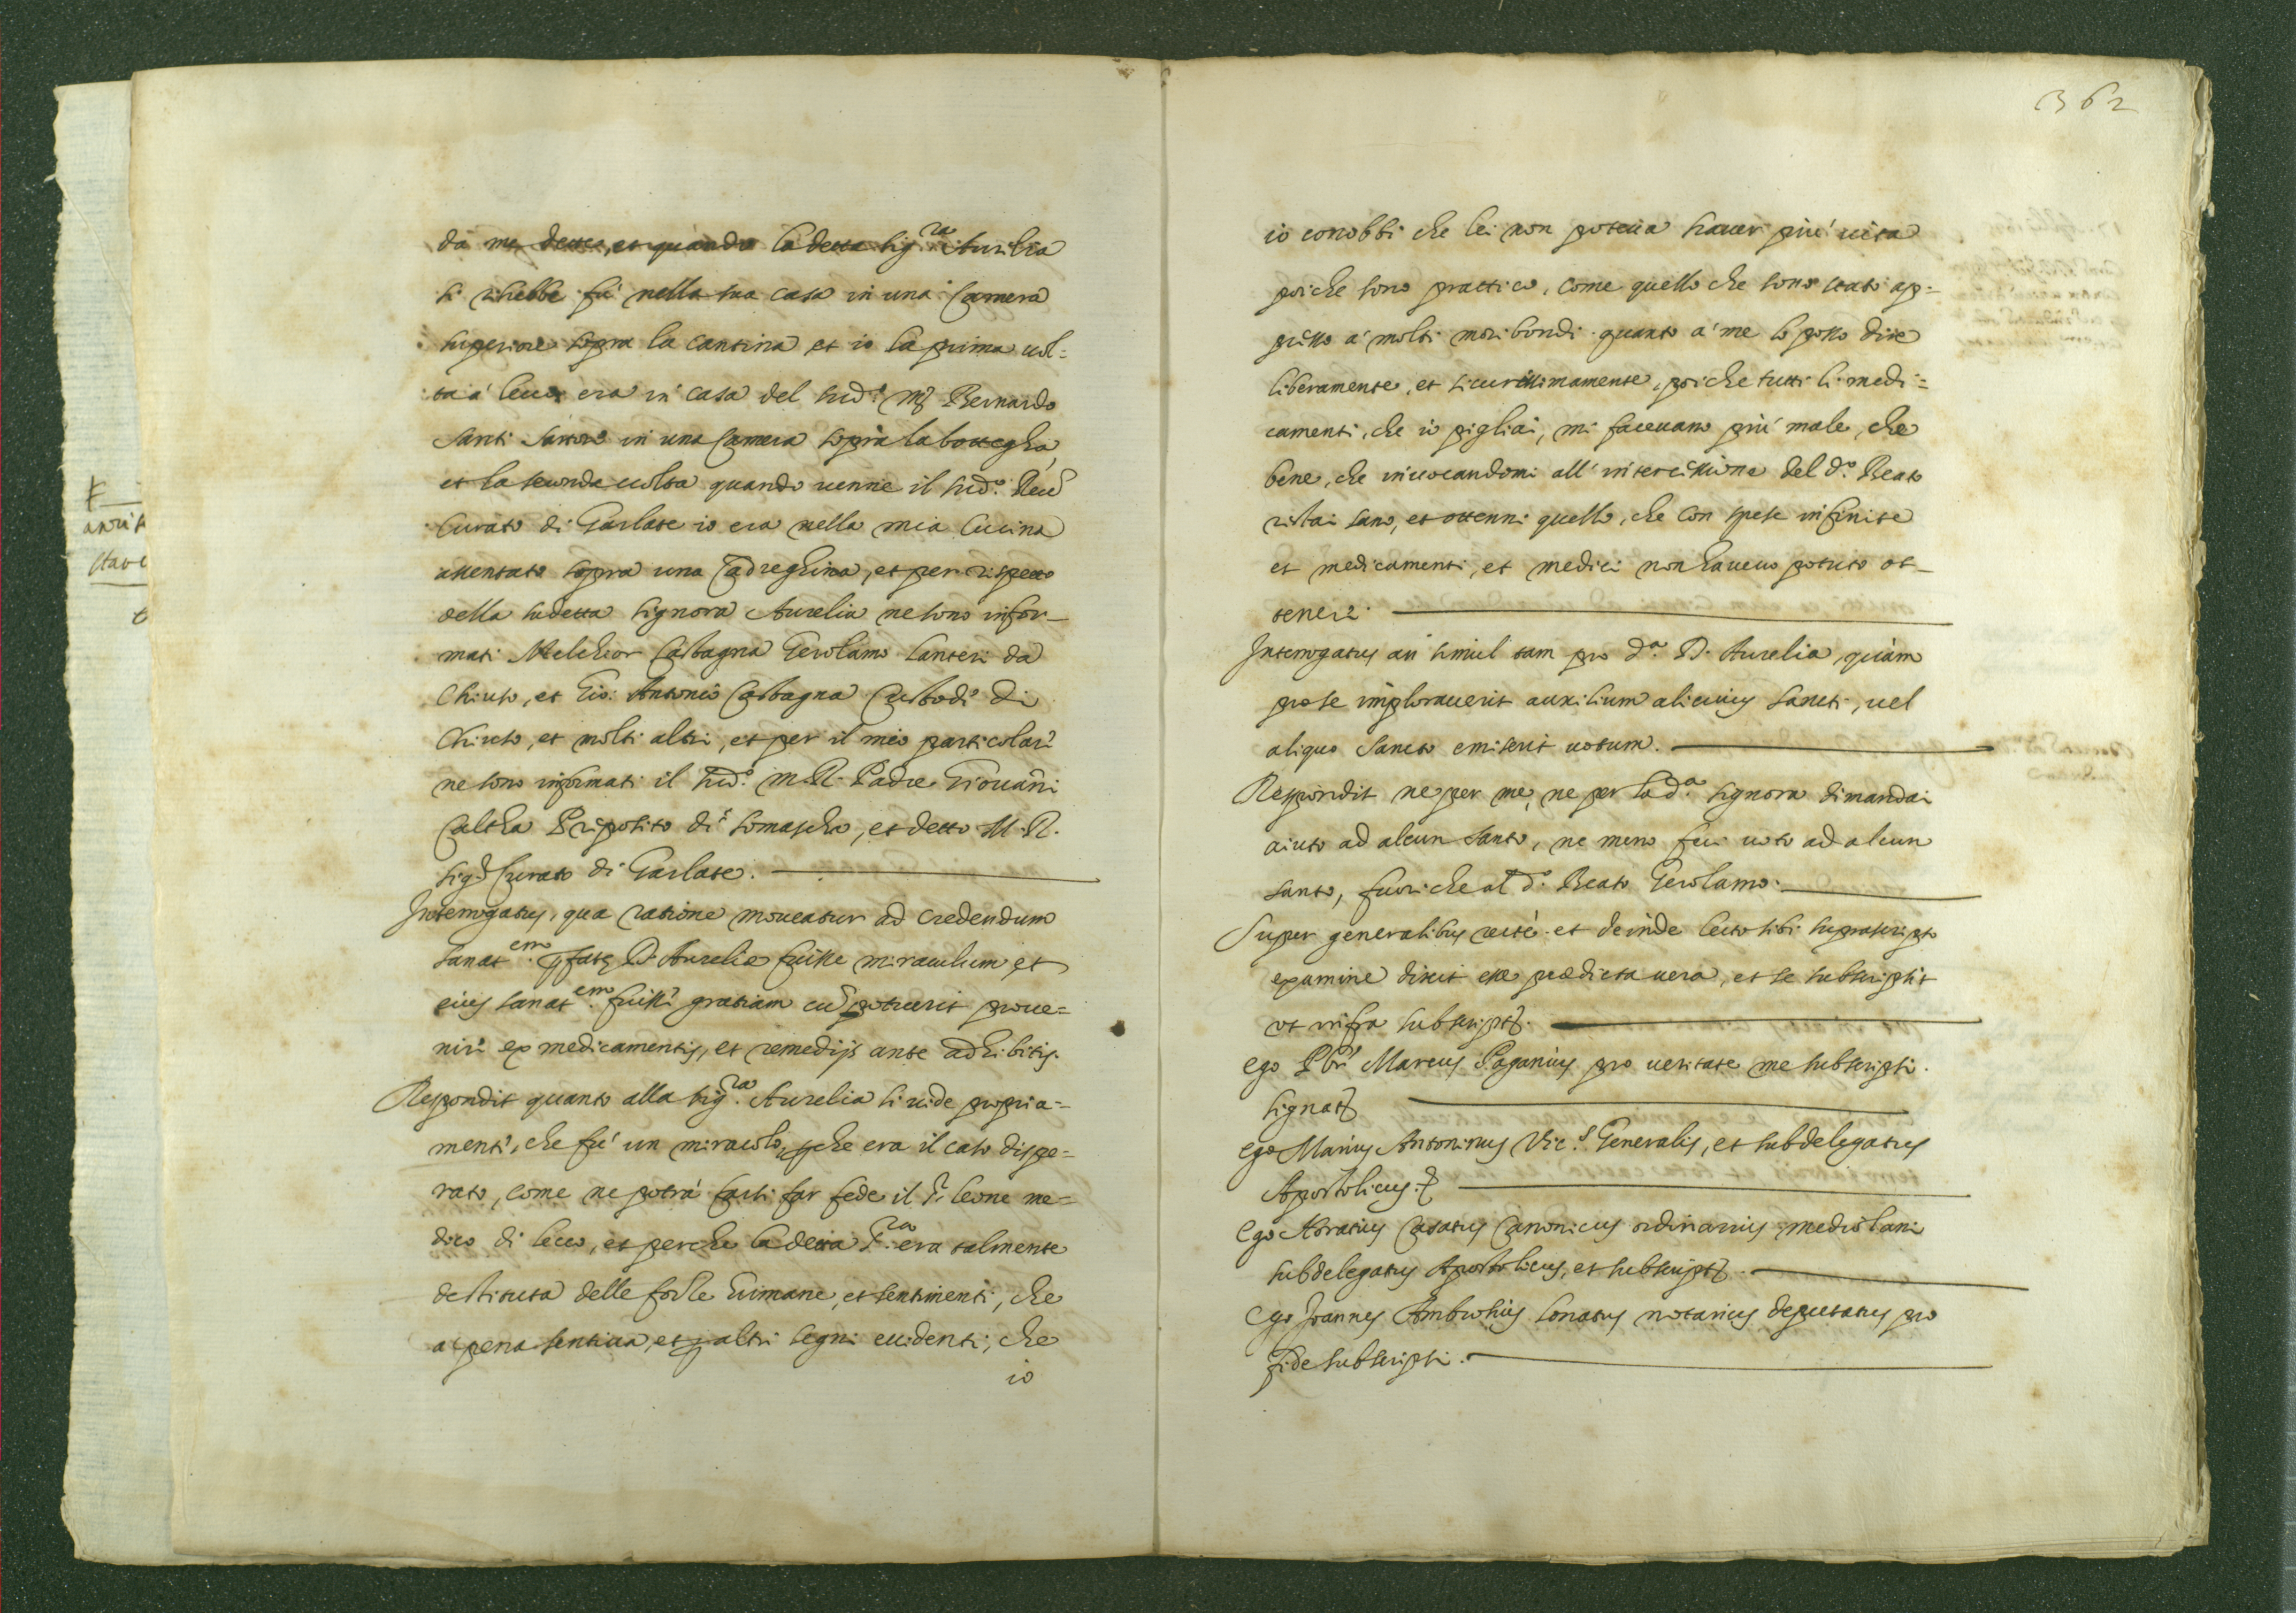 da me dette, et quando la detta Sig.ra Aurelia
si rihebbe fu nella sua casa in una Camera
superiore sopra la cantina et io la prima uol=
ta á lecco era in casa del sud.o Mr Bernardo
Santi Sartore in una Camera sopra la bottegha,
et la seconda uolta quando uenne il sud.o Reu
Curato di Garlate io era nella mia Cucina
assentato sopra una Cadreghina, et per rispetto
della sudetta Signora Aurelia ne sono infor-
mati Melchior Castagna Gerolamo Lanteri da
Chiuso, et Gio: Antonio Castagna Custode di
Chiuso, et molti altri, et per il mio particolare
ne sono informati il sud.o M.R. Padre Giouañi
Calta Preposito di Somascha, et detto M.R.
Sig.r Curato di Garlate.
Interrogatus, qua ratione moueatur ad credendum
sanat.em D. Aurelie fuisse miraculum et
eius sanat.em fuisse gratiam cu potuerit proue=
nire ex medicamentis, et remedijs ante adhibitis.
Respondit quanto alla sig.ra Aurelia si uide propria=
mente, che fu un miracolo, perche era il caso dispe=
rato, come ne potrá farsi far fede il Sr Leone me=
dico di Lecco, et perche la detta S.ra era talmente
destituta delle forze humane, et sentimenti, che
a pena sentiua, et per altri segni euidenti, che
io
362
io conobbi che lei non poteua hauer piu uita
poiche sono prattico, come quello che sono stato ap=
presso á molti moribondi. quanto á me lo posso dire
liberamente, et sicurissimamente, poiche tutti li medi=
camenti, che io pigliai, mi faceuano piu male, che
bene, che inuocandomi all'intercessione del d.o Beato
restai sano, et ottenni quello, che con spese infinite
et medicamenti, et medici non haueuo potuto ot-
tenere.
Interrogatus an simul tam pro d.a D. Aurelia, quám
pro se implorauerit auxilium alicuius Sancti, uel
aliquo Sancto emiserit uotum.
Respondit ne per me, ne per la d.a Signora dimandai
aiuto ad alcun Santo, ne meno feci uoto ad alcun
Santo, fuori che al d.o Beato Gerolamo.
Super generalibus recté. et deinde lecto sibi suprascripto
examine dixit esse predicta uera, et se subscripsit
ut infra subscript
ego Pbr Marcus Paganius pro ueritate me subscripsi.
Signat
ego Marius Antoninus Vic.s Generalis, et subdelegatus
Apostolicus.
Ego Horatius Casatus Canonicus ordinarius mediolani
subdelegatus Apostolicus, et subscript
Ego Joannes Ambrosius Lonatus notarius deputatus pro
fide subscripsi.